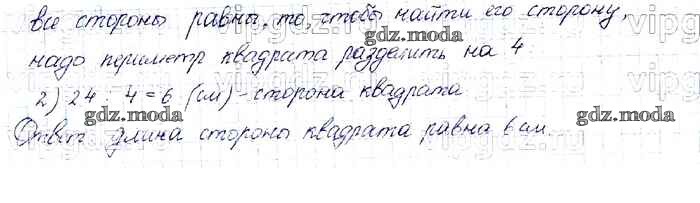 все стороны равны, то, чтобы найти его сторону,
надо периметр квадрата разделить на 4
2) 24 : 4 = 6 (см) - сторона квадрата
Ответ длина стороны квадрата равна 6 см.
gdz.moda gdz.moda gdz.moda
gdz.moda gdz.moda gdz.moda